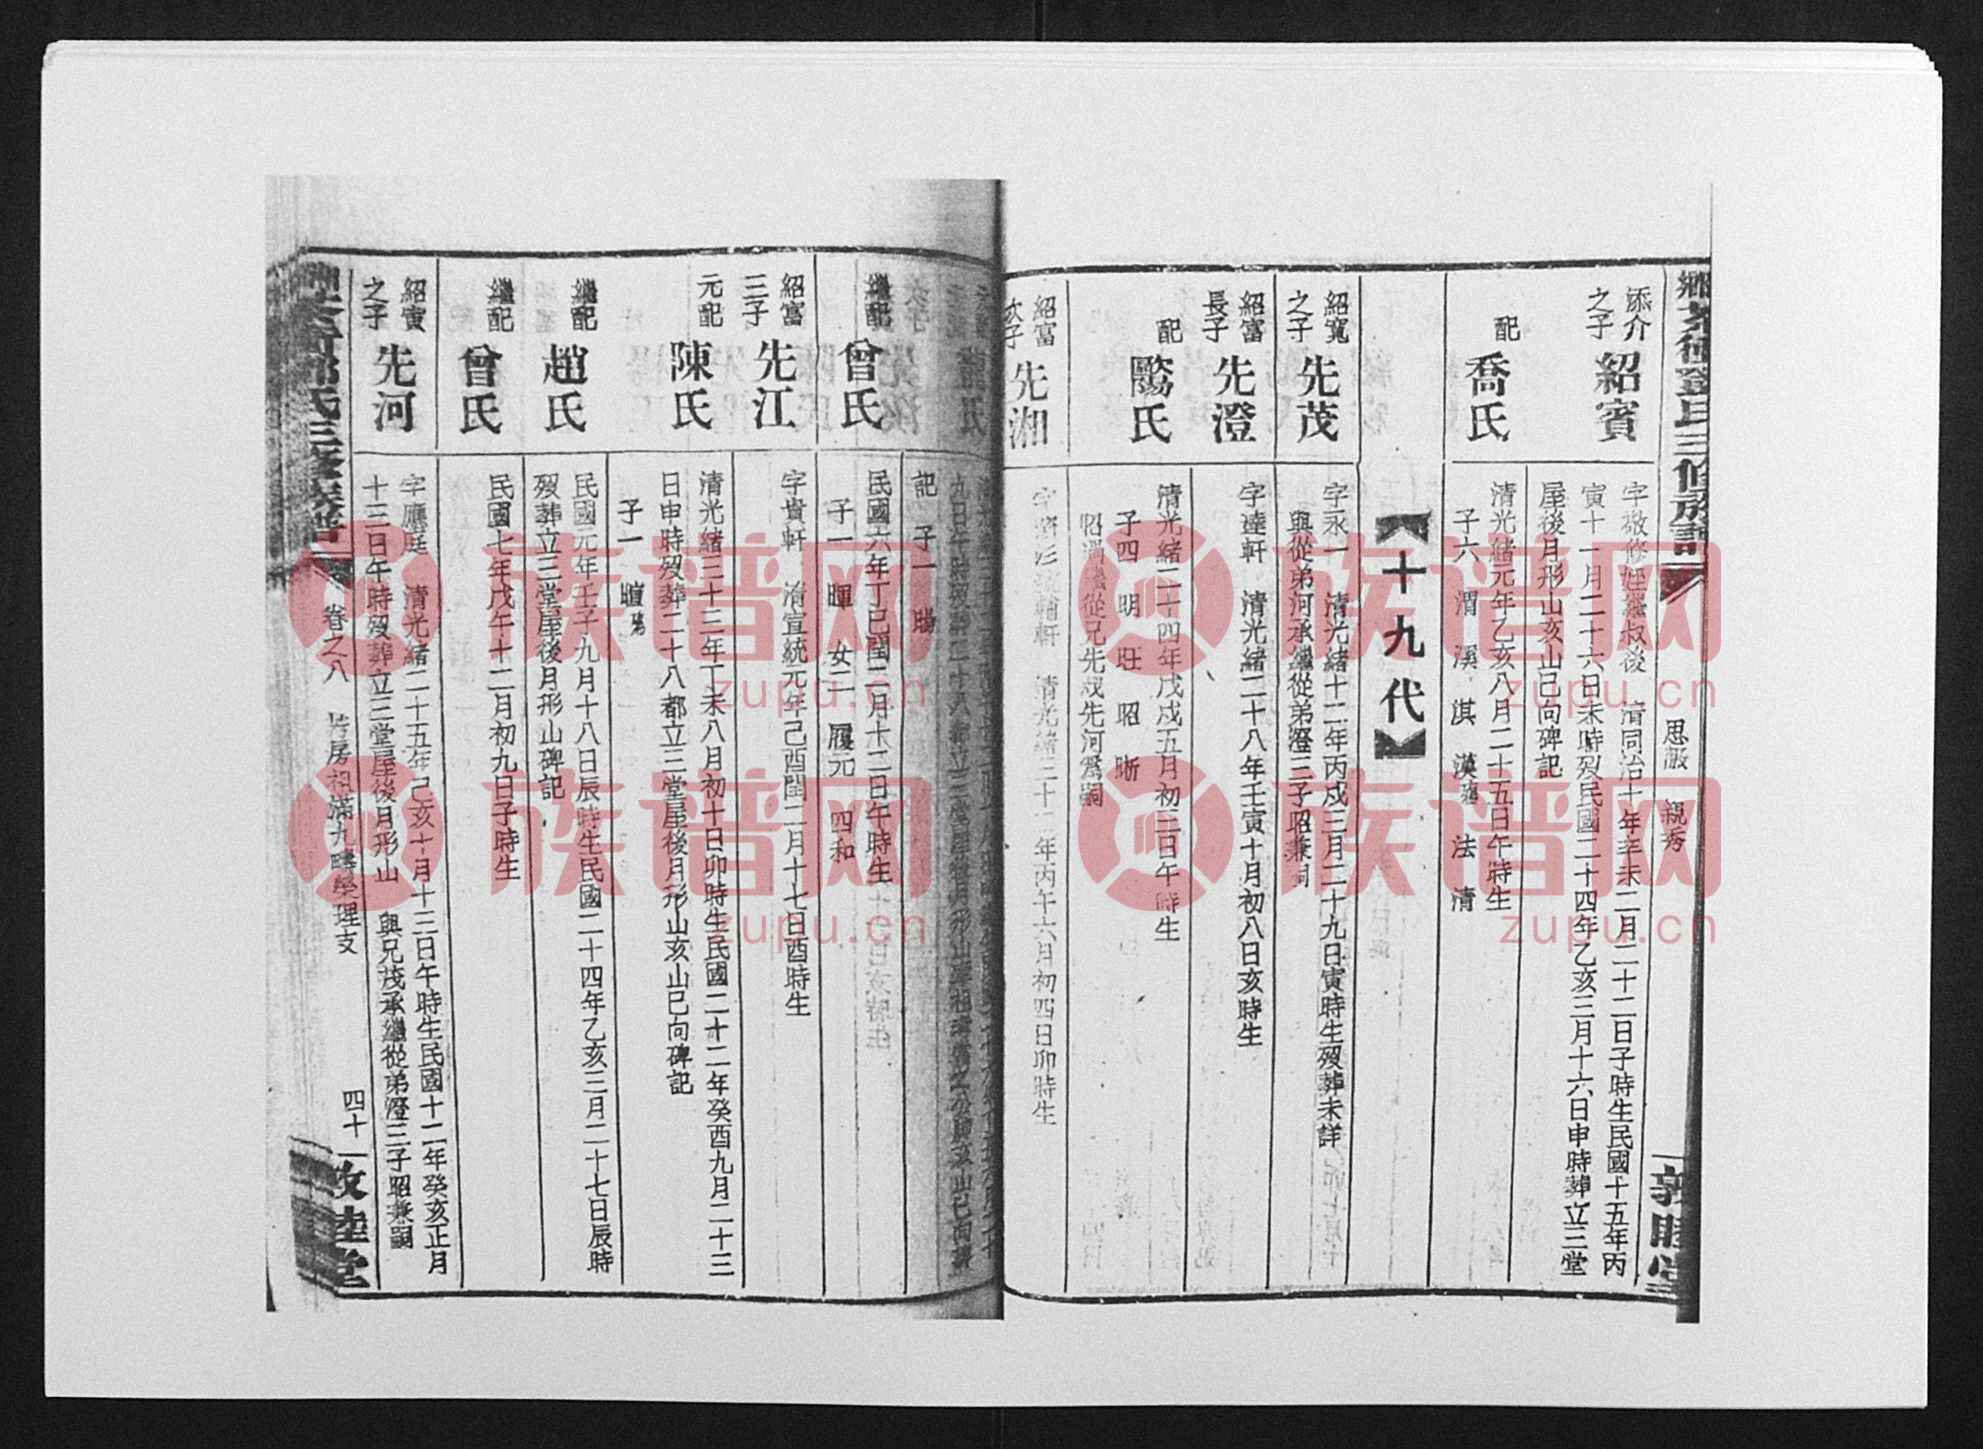 氏三修族譜
思敬
親秀
敦睦堂
添介之子
紹賓
字敬修
清同治十年辛未二月二十二日子時生民國十五年丙
寅十一月二十六日未時歿民國二十四年乙亥三月十六日申時葬立三堂
屋後月形山亥山巳向碑記
配
喬氏
清光緒元年乙亥八月二十五日午時生
子六 渭 溪 淇 漢 法 清
【十九代】
紹寬之子
先茂
字永一 清光緒十二年丙戌三月二十九日寅時生歿葬未詳
與從弟河承繼從弟澄三子昭兼祠
紹富長子
先澄
字達軒 清光緒二十八年壬寅十月初八日亥時生
配
氏
清光緒二十四年戊戌五月初三日午時生
子四 明 旺 昭 晰
從兄先茂先河為嗣
紹富次子
先湘
輔軒 清光緒三十二年丙午六月初四日卯時生
氏
記 子一 暘
繼配
曾氏
民國六年丁巳閏二月十二日午時生
子一 暉 女二 履元 四和
紹富三子
先江
字貴軒 清宣統元年己酉閏二月十七日酉時生
元配
陳氏
清光緒三十三年丁未八月初十日卯時生民國二十二年癸酉九月二十三
日申時歿葬二十八都立三堂屋後月形山亥山巳向碑記
子一 暄
繼配
趙氏
民國元年壬子九月十八日辰時生民國二十四年乙亥三月二十七日辰時
歿葬立三堂屋後月形山碑記
繼配
曾氏
民國七年戊午十二月初九日子時生
紹賓之子
先河
字應庭 清光緒二十五年己亥十月十三日午時生民國十二年癸亥正月
十三日午時歿葬立三堂屋後月形山 與兄茂承繼從弟澄三子昭兼嗣
氏三修族譜
卷之八
房祖滿九疇燮理支
四十
敦睦堂
族谱网
zupu.cn
族谱网
zupu.cn
族谱网
zupu.cn
族谱网
zupu.cn